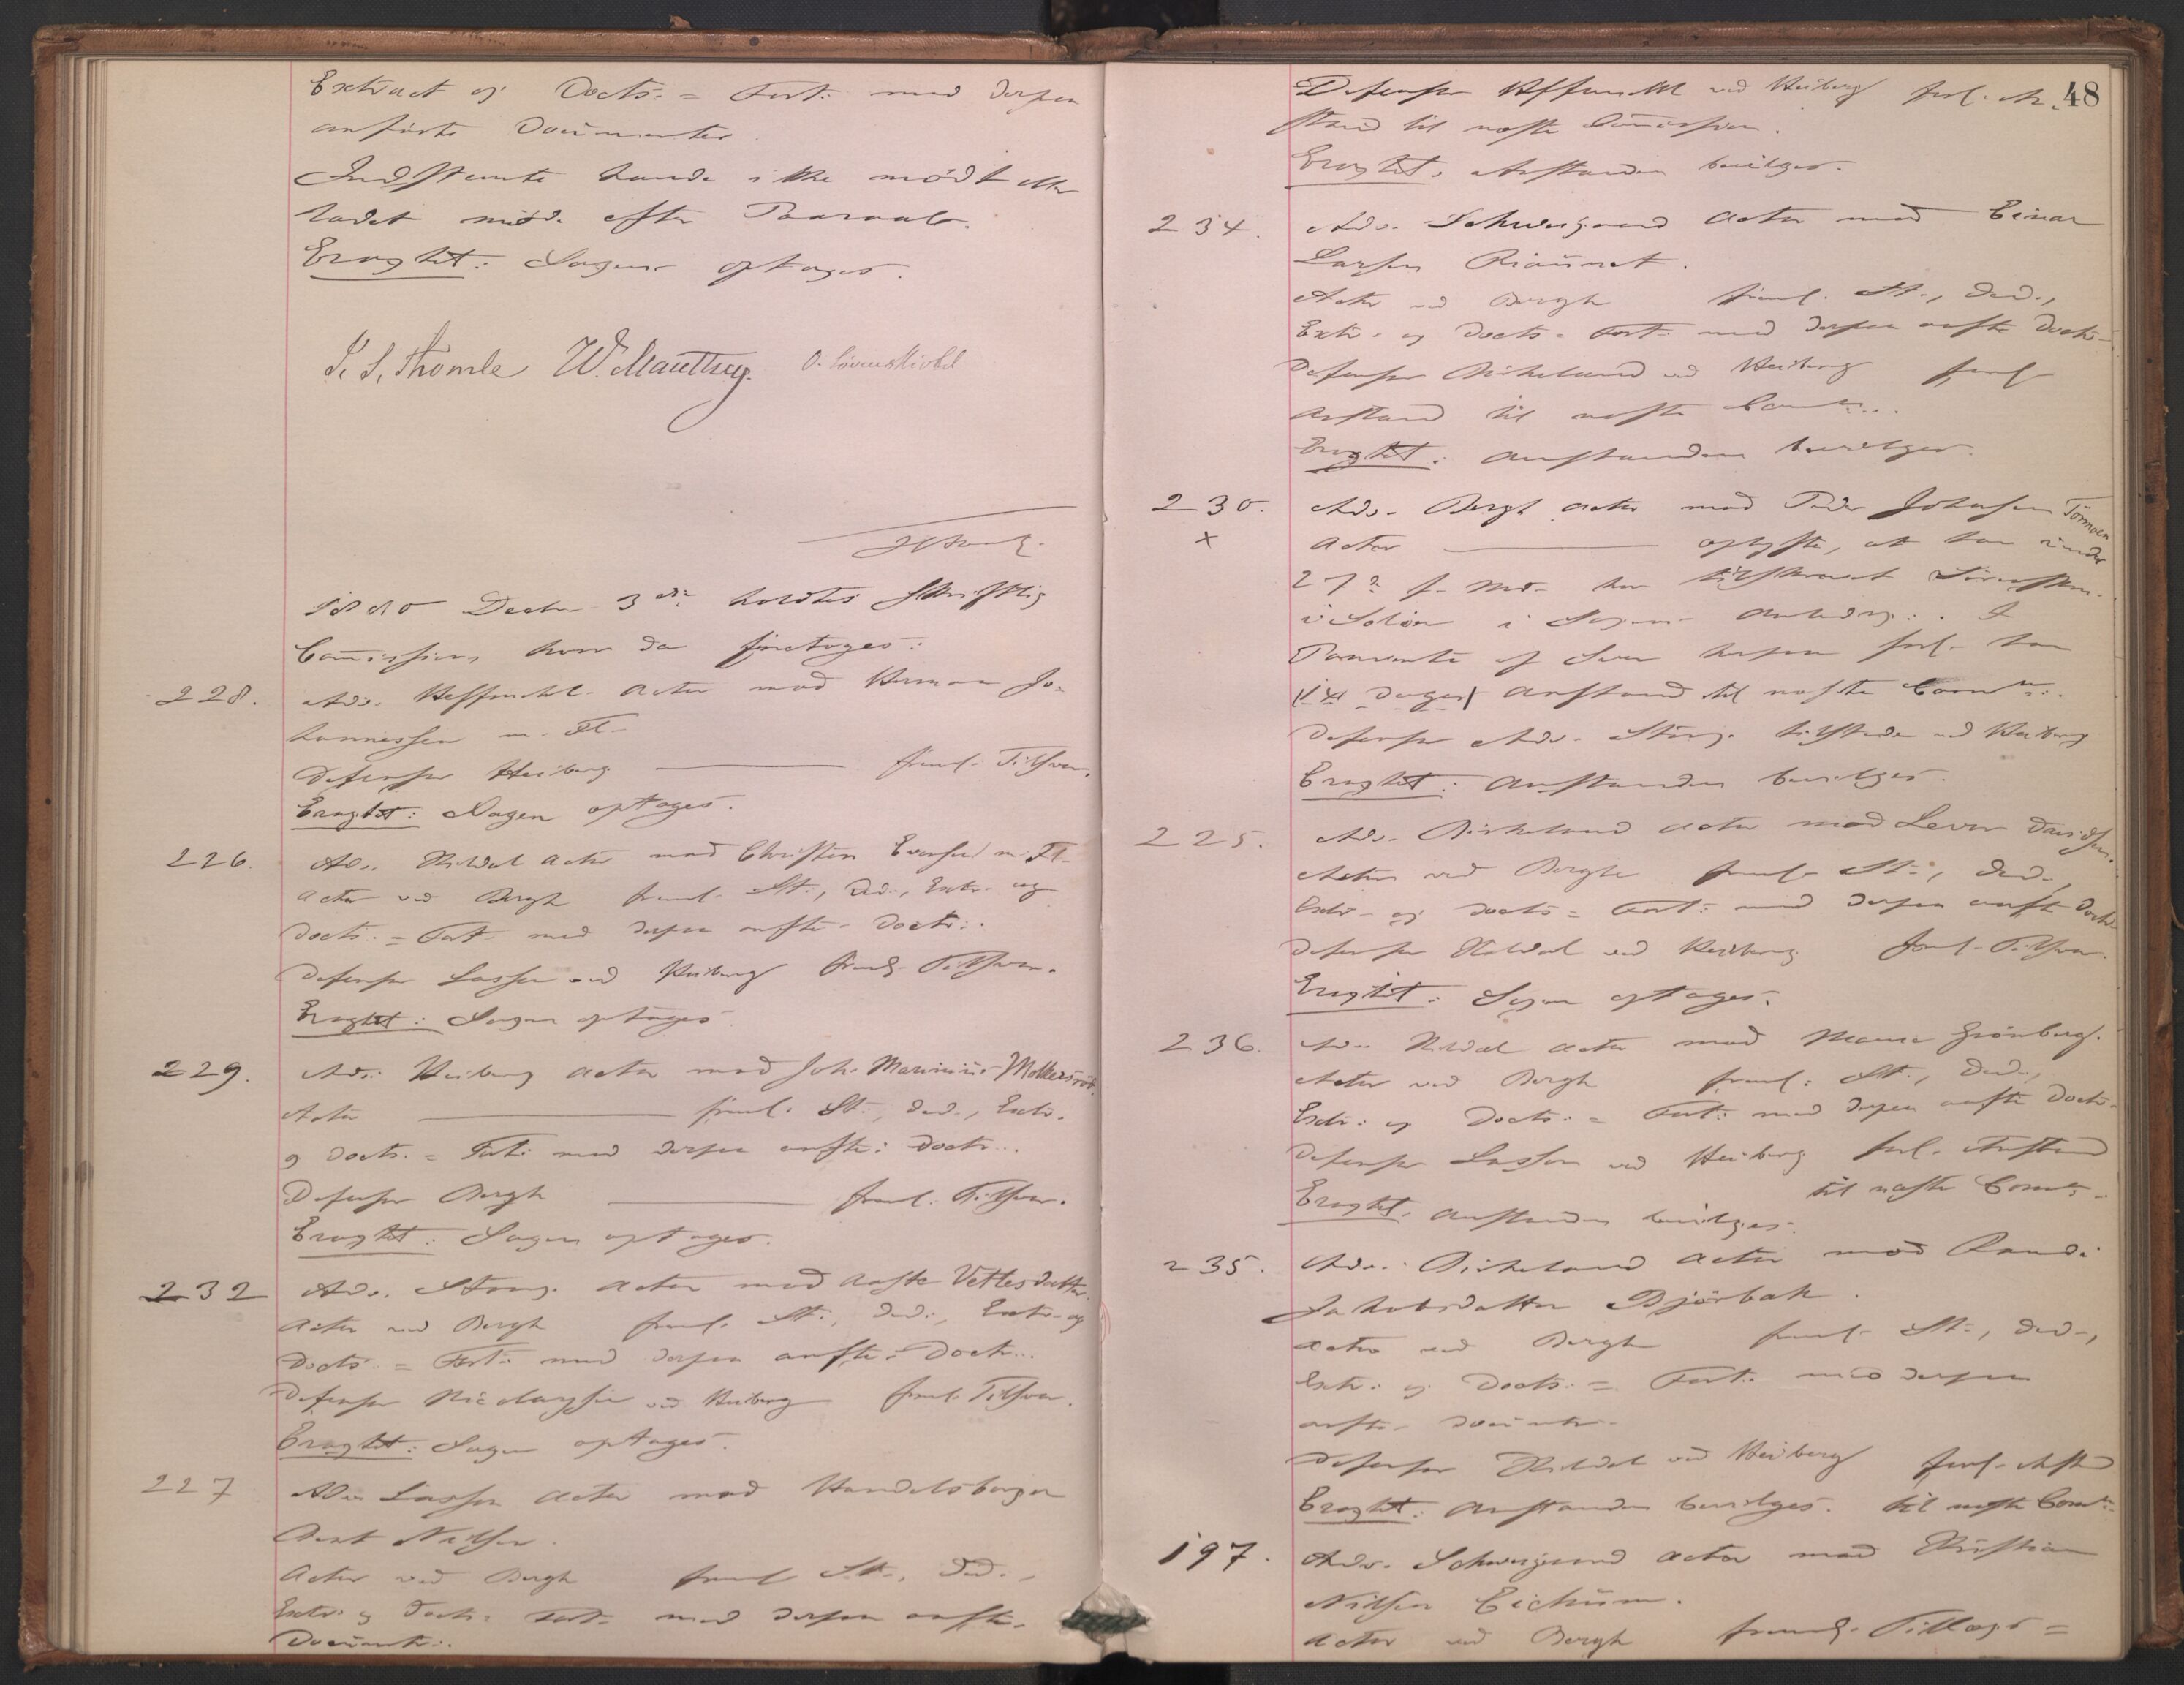 Extract og Docts. = Fort: med derpaa
anførte Documenter.
Indstevnte havde ikke mødt eller
ladet møde efter Paaraab.
Eragtet: Sagen optages.
W. Manthey. O. Løvenskiold
1880 Decbr 3die holdtes skriftlig
Commission, hvor da foretoges:
228.
Adv. Actor mod Herman Jo=
hannessen m. Fl.
Defensor Heiberg ——— freml. Tilsvar.
Eragtet: Sagen optages.
226.
Adv. Actor mod Christen m. Fl.
Actor ved Bergh freml. St., Ded., Extr. og
Docts. = Fort. med derpaa anførte Doctr.
Defensor Lassen ved Heiberg freml. Tilsvar.
Eragtet: Sagen optages
229.
Adv. Heiberg Actor mod Joh. Marinius
Actor ——— freml. St., Ded., Extr.
og Docts. = Fort. med derpaa anfte. Doctr.
Defensor Bergh ——— freml. Tilsvar.
Eragtet: Sagen optages.
232
Adv. Actor mod Aaste Vetlesdatter.
Actor ved Bergh freml. St., Ded., Extr. og
Docts. = Fort. med derpaa anfte. Doctr.
Defensor Nicolaysen ved Heiberg freml. Tilsvar.
Eragtet: Sagen optages.
227
Adv. Lassen Actor mod Handelsborger
Nilsen.
Actor ved Bergh freml. St., Ded.,
Extr. og Docts. = Fort. med derpaa anfte.
Documenter.
48
Defensor ved Heiberg forl. An=
stand til næste Commission.
Eragtet: Anstanden bevilges.
234.
Adv. Schweigaard Actor mod Einar
Larsen
Actor ved Bergh freml. St., Ded.,
Extr. og Docts. = Fort. med derpaa anfte Doctr.
Defensor Birkeland ved Heiberg forl.
Anstand til næste Comn.
Eragtet: Anstanden bevilges.
230.
Adv. Bergh Actor mod Peder Johnsen
x
Actor ——— oplyste, at han under
27de f. Md. har tilskrevet
i Solør i Sagens Anledng. I
Paavente af Svar herpaa forl. han
Dage Anstand til næste Comn.
Defensor Adv. tilstede ved Heiberg
Eragtet: Anstanden bevilges.
225.
Adv. Birkeland Actor mod Davidsen.
Actor ved Bergh freml. St., Ded.,
Extr. og Docts = Fort: med derpaa anfte Doctr.
Defensor ved Heiberg freml. Tilsvar.
Eragtet: Sagen optages.
236.
Adv. Actor mod Grønberg.
Actor ved Bergh freml. St., Ded.,
Extr. og Docts: = Fort: med derpaa anfte Doctr.
Defensor Lassen ved Heiberg forl. Anstand
til næste Comn.
Eragtet. Anstanden bevilges.
235.
Adv. Birkeland Actor mod Randi
Jakobsdatter Bjørbak.
Actor ved Bergh freml. St., Ded.,
Extr. og Docts. = Fort. med derpaa
anfte. Documtr.
Defensor ved Heiberg forl. Anstd
Eragtet: Anstanden bevilges. til næste Comn.
197.
Adv. Schweigaard Actor mod Kristian
Nilsen
Actor ved Bergh freml. Tillægs=